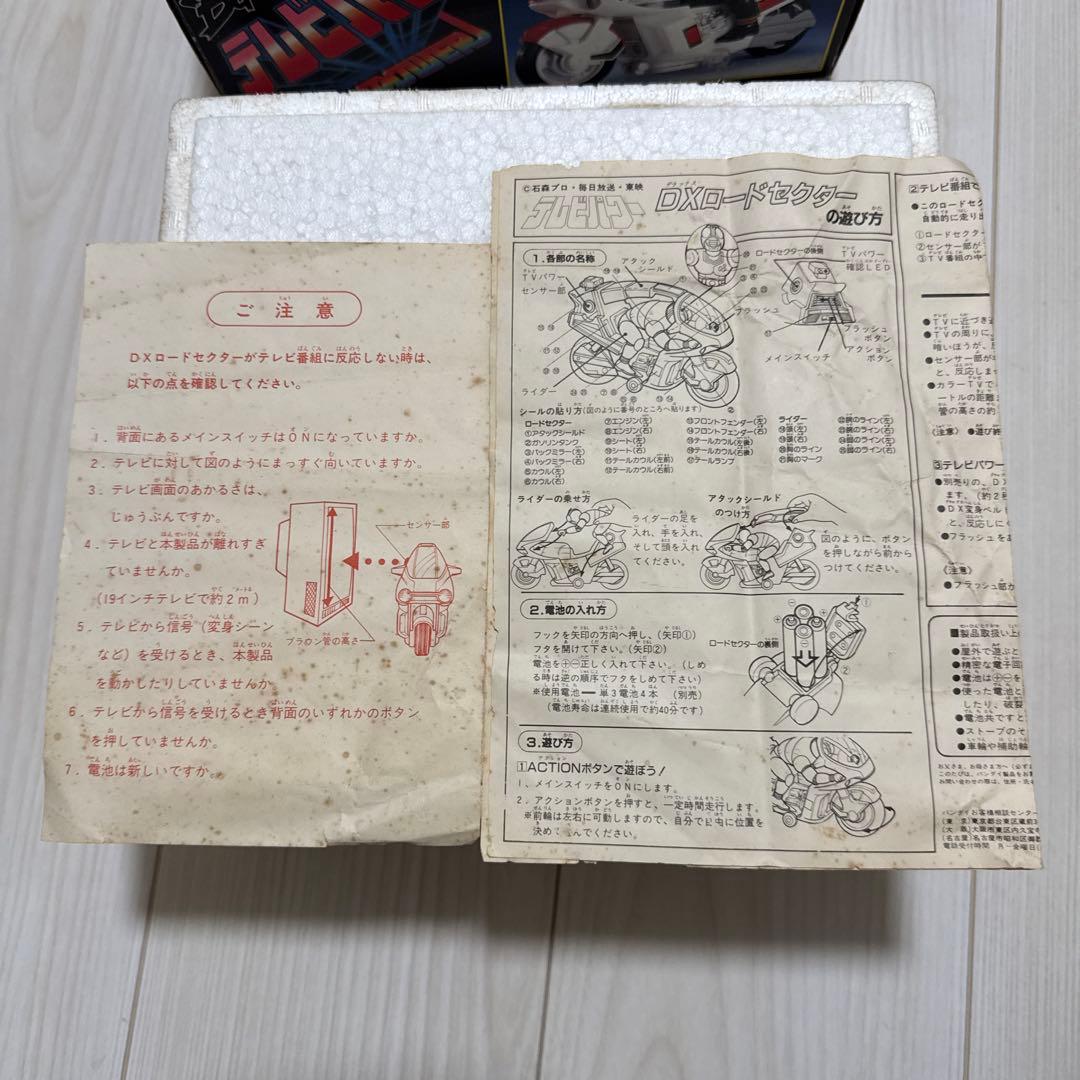 テレビパワー
POWER
ご注意
DXロードセクターがテレビ番組に反応しない時は、
以下の点を確認してください。
1．背面にあるメインスイッチはONになっていますか。
2．テレビに対して図のようにまっすぐ向いていますか。
3．テレビ画面のあかるさは、
じゅうぶんですか。
4．テレビと本製品が離れすぎ
ていませんか。
(19インチテレビで約2m)
5．テレビから信号（変身シーン
など）を受けるとき、本製品
を動かしたりしていませんか
6．テレビから信号を受けるとき背面のいずれかのボタン
を押していませんか。
7．電池は新しいですか。
センサー部
ブラウン管の高さ
©石森プロ・毎日放送・東映
テレビパワー
DXロードセクター
の遊び方
1.各部の名称
TVパワー
センサー部
アタック
シールド
ロードセクターの後側
TVパワー
確認LED
フラッシュ
フラッシュ
ボタン
アクション
ボタン
メインスイッチ
ライダー
シールの貼り方(図のように番号のところへ貼ります)
ロードセクター
①アタックシールド
②ガソリンタンク
③バックミラー(左)
④バックミラー(右)
⑤カウル(左)
⑥カウル(右)
⑦エンジン(左)
⑧エンジン(右)
⑨シート(左)
⑩シート(右)
⑪テールカウル(左前)
⑫テールカウル(右前)
⑬フロントフェンダー(左)
⑭フロントフェンダー(右)
⑮テールカウル(左後)
⑯テールカウル(右後)
⑰テールランプ
ライダー
⑱頭(左)
⑲頭(右)
⑳胸のライン
㉑胸のマーク
㉒腕のライン(左)
㉓腕のライン(右)
㉔脚のライン(左)
㉕脚のライン(右)
ライダーの乗せ方
ライダーの足を
入れ、手を入れ、
そして頭を入れ
てください。
アタックシールド
のつけ方
図のように、ボタン
を押しながら前から
つけてください。
2.電池の入れ方
フックを矢印の方向へ押し、(矢印①)
フタを開けて下さい。(矢印②)
電池を⊕⊖正しく入れて下さい。(しめ
る時は逆の順序でフタをしめて下さい)
※使用電池━単3電池4本（別売）
(電池寿命は連続使用で約40分です)
ロードセクターの裏側
3.遊び方
1 ACTIONボタンで遊ぼう！
1、メインスイッチをONにします。
2．アクションボタンを押すと、一定時間走行します。
※前輪は左右に可動しますので、自分で
位置を
決めて
んでください。
2テレビ番組で
●このロードセク
自動的に走り出
①ロードセクタ
②センサー部が
③TV番組の中
●TVに近づき
●TVの周りに、
暗いほうが、
●センサー部が
と、反応しま
●カラーTVで
ートルの距離
管の高さの約
〈注意〉●遊び終
3テレビパワー
●別売りの、D
ます。(約2
●DX変身ベル
と、反応しにく
●フラッシュを
〈注意〉
●フラッシュ部
■製品取扱い上
●屋外で遊ぶと
●精密な電子回
●電池は⊕⊖を
●使った電池と
したり、破裂
●電池共ですと
●ストーブのそ
●車輪や補助輪
お父さま、お母さま方へ(必ず
このたびは、バンダイ製品をお
お問い合わせの際は、住所・氏
バンダイお客様相談センター
(東京)東京都台東区蔵前3
(大阪)大阪市東区内久宝
(名古屋)名古屋市昭和区
電話受付時間 月―金曜日